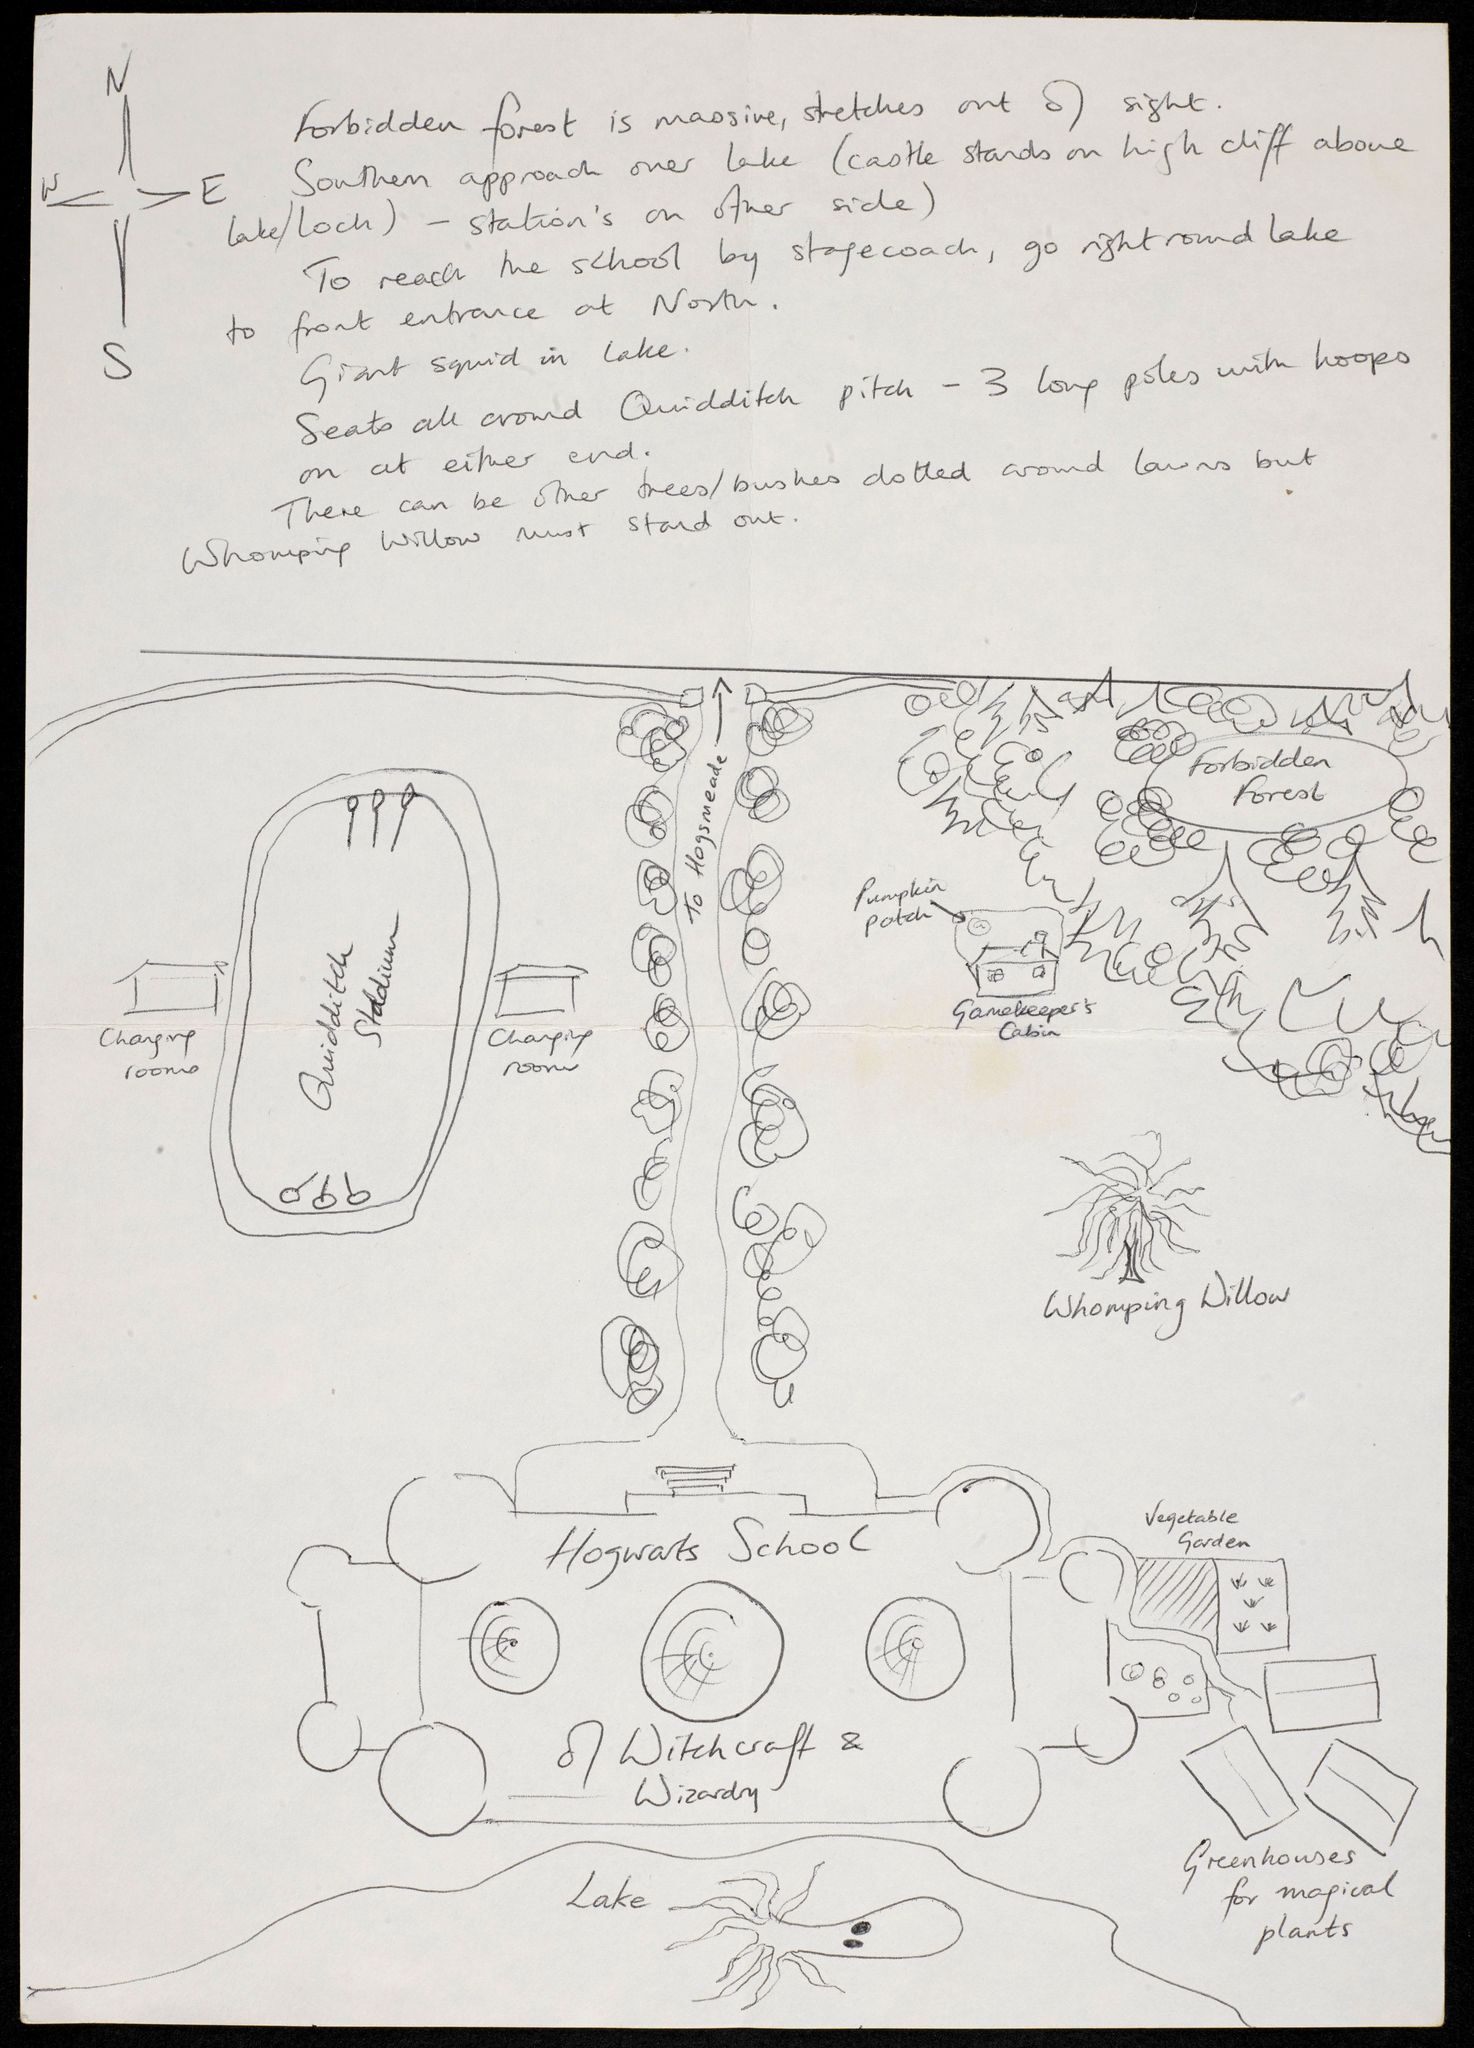 N
W
E
S
Forbidden forest is massive, stretches out of sight.
Southern approach over lake (castle stands on high cliff above
lake/loch) - station's on other side)
To reach the school by stagecoach, go right round lake
to front entrance at North.
Giant squid in lake.
Seats all around Quidditch pitch - 3 long poles with hoops
on at either end.
There can be other trees/bushes dotted around lawns but
Whomping Willow must stand out.
To Hogsmeade
Forbidden
Forest
Pumpkin
patch
Gamekeeper's
Cabin
Quidditch
Stadium
Changing
rooms
Changing
rooms
Whomping Willow
Hogwarts School
of Witchcraft &
Wizardry
Vegetable
Garden
Greenhouses
for magical
plants
Lake